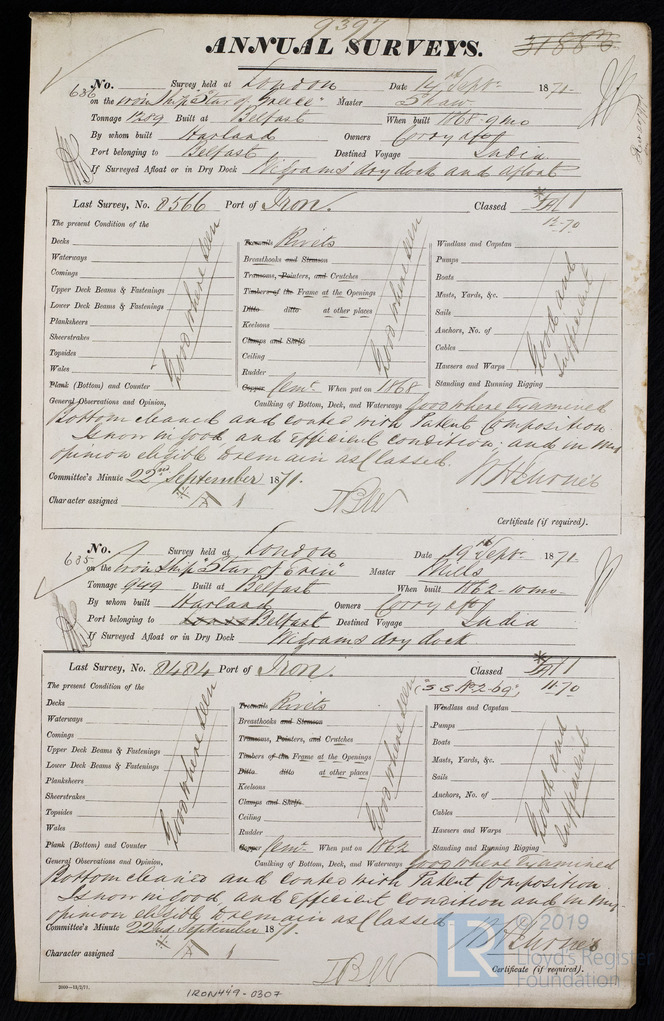 9397
ANNUAL SURVEYS.
3188
No. 636 Survey held at London Date 14th Sept. 1871.
on the Iron Ship "Star of Greece" Master Shaw
Tonnage 1289 Built at Belfast When built 1868. 9mo
By whom built Harland Owners Corry & Co
Port belonging to Belfast Destined Voyage India
If Surveyed Afloat or in Dry Dock Wigrams dry dock and afloat
Last Survey, No. 8566 Port of Iron. Classed A 1
12-70
The present Condition of the
Decks
Waterways
Comings
Upper Deck Beams & Fastenings
Lower Deck Beams & Fastenings
Planksheers
Sheerstrakes
Topsides
Wales
Plank (Bottom) and Counter
Good where seen
Treenails Rivets
Breasthooks and Stemson
Transoms, Pointers, and Crutches
Timbers of the Frame at the Openings
Ditto ditto at other places
Keelsons
Clamps and Shelfs
Ceiling
Rudder
Copper Cemt. When put on 1868
Good where seen
Windlass and Capstan
Pumps
Boats
Masts, Yards, &c.
Sails
Anchors, No. of
Cables
Hawsers and Warps
Standing and Running Rigging
Good and Sufficient
General Observations and Opinion, Caulking of Bottom, Deck, and Waterways Good where Examined
Bottom cleaned and coated with Patent Composition
Is now in good and Efficient condition; and in my
opinion eligible to remain as Classed.
Committee's Minute 22nd September 1871.
Character assigned A 1
Certificate (if required).
No. 635 Survey held at London Date 19th Sept. 1871.
on the Iron Ship "Star of Erin" Master Mills
Tonnage 949 Built at Belfast When built 1862-10mo-
By whom built Harland Owners Corry & Co
Port belonging to Belfast Destined Voyage India
If Surveyed Afloat or in Dry Dock Wigrams dry dock
Last Survey, No. 8484 Port of Iron. Classed A 1
(S S No 2-69) 11-70
The present Condition of the
Decks
Waterways
Comings
Upper Deck Beams & Fastenings
Lower Deck Beams & Fastenings
Planksheers
Sheerstrakes
Topsides
Wales
Plank (Bottom) and Counter
Good where seen
Treenails Rivets
Breasthooks and Stemson
Transoms, Pointers, and Crutches
Timbers of the Frame at the Openings
Ditto ditto at other places
Keelsons
Clamps and Shelfs
Ceiling
Rudder
Copper Cemt. When put on 1862
Good where seen
Windlass and Capstan
Pumps
Boats
Masts, Yards, &c.
Sails
Anchors, No. of
Cables
Hawsers and Warps
Standing and Running Rigging
Good and Sufficient
General Observations and Opinion, Caulking of Bottom, Deck, and Waterways Good where Examined
Bottom cleaned and coated with Patent Composition.
Is now in good, and Efficient condition and in my
opinion eligible to remain as Classed
Committee's Minute 22nd September 1871.
Character assigned A 1
Certificate (if required).
2000—13/2/71.
IRON449-0307
© 2019
LR Lloyd's Register
Foundation